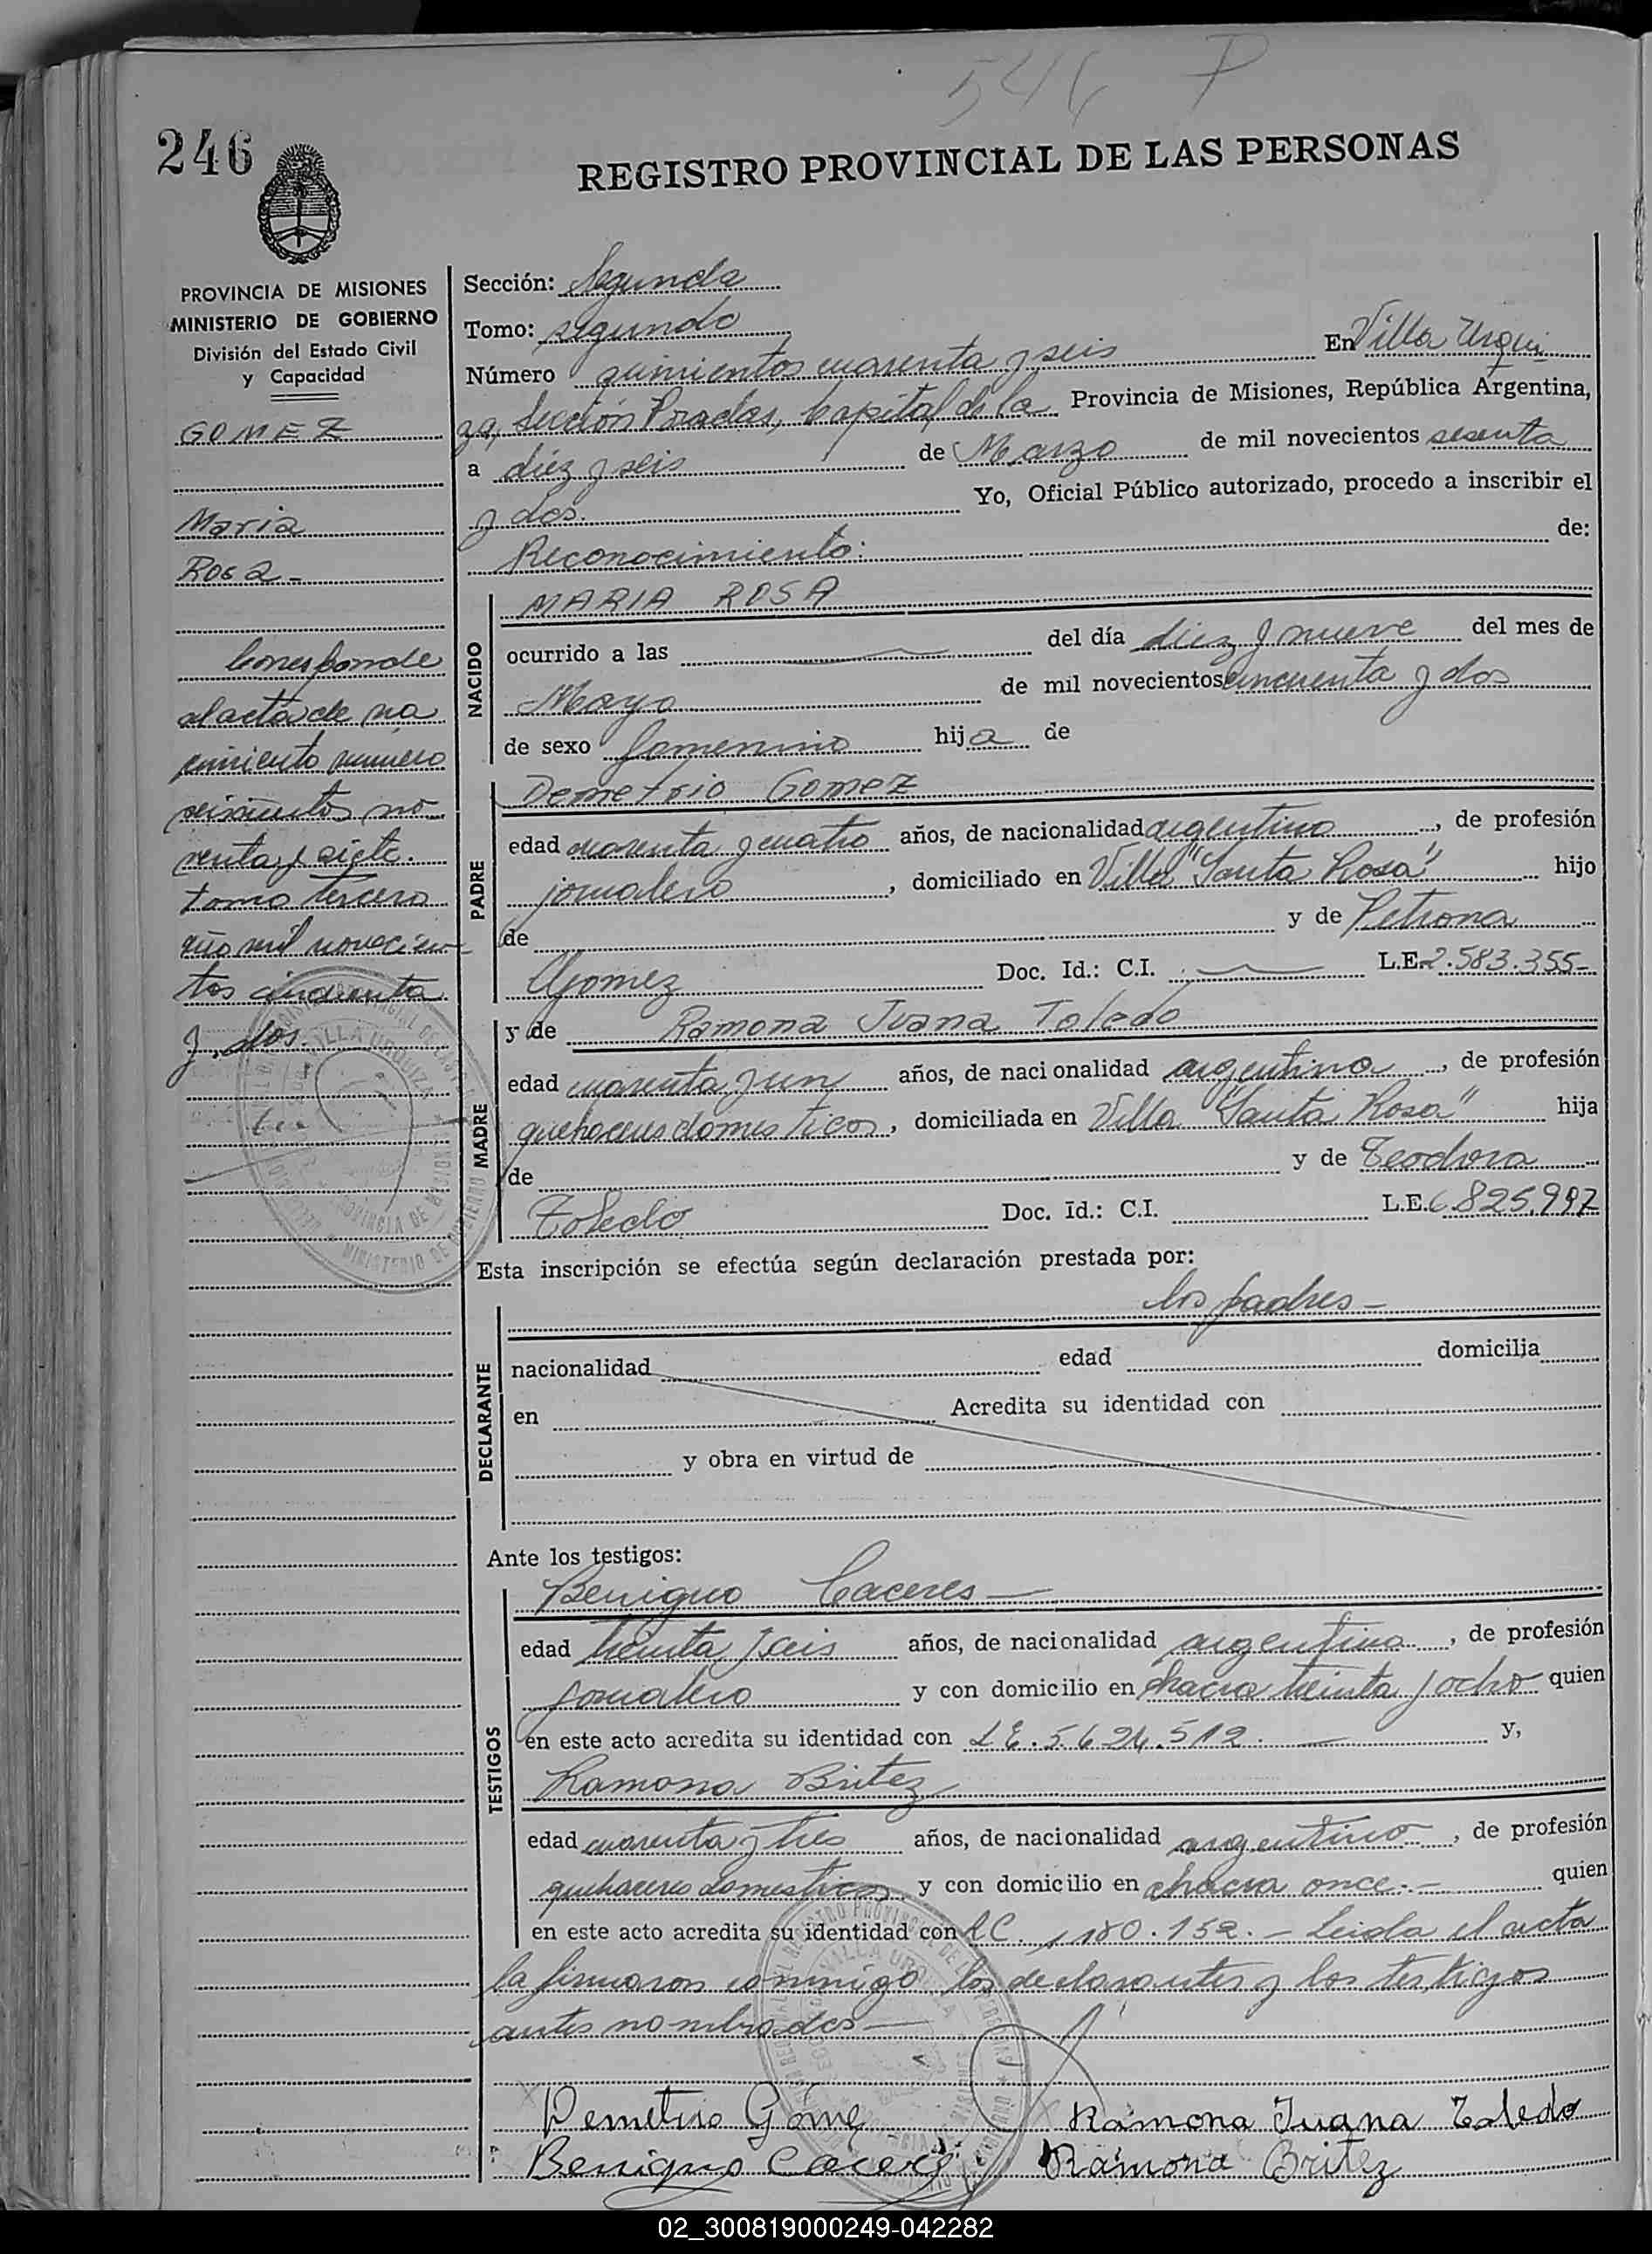 546 P
246
REGISTRO PROVINCIAL DE LAS PERSONAS
PROVINCIA DE MISIONES
MINISTERIO DE GOBIERNO
División del Estado Civil
y Capacidad
GOMEZ
Maria
Rosa -
Corresponde
al acta de na
cimiento número
seiscientos no
venta y siete.
tomo tercero
año mil novecien
tos cincuenta
y dos.
Sección: Segunda
Tomo: segundo
Número quinientos cuarenta y seis En Villa Urqui
za, Sección Poradas, Capital de la Provincia de Misiones, República Argentina,
a diez y seis de Marzo de mil novecientos sesenta
y dos. Yo, Oficial Público autorizado, procedo a inscribir el
Reconocimiento: de:
NACIDO
MARIA ROSA
ocurrido a las del día diez y nueve del mes de
Mayo de mil novecientos cincuenta y dos
de sexo femenino hija de
PADRE
Demetrio Gomez
edad cuarenta y cuatro años, de nacionalidad argentino, de profesión
jornalero, domiciliado en Villa "Santa Rosa" hijo
de y de Petrona
Gomez Doc. Id.: C.I. L.E. 2.583.355-
MADRE
y de Ramona Juana Toledo
edad cuarenta y un años, de nacionalidad argentina, de profesión
quehaceres domesticos, domiciliada en Villa "Santa Rosa" hija
de y de Teodora
Toledo Doc. Id.: C.I. L.E. 6.825.997
Esta inscripción se efectúa según declaración prestada por:
los padres -
DECLARANTE
nacionalidad edad domicilia
en Acredita su identidad con
y obra en virtud de
Ante los testigos:
TESTIGOS
Benigno Caceres
edad treinta y seis años, de nacionalidad argentino, de profesión
jornalero y con domicilio en chacra treinta y ocho quien
en este acto acredita su identidad con L.E. 5.624.512. y,
Ramona Britez
edad cuarenta y tres años, de nacionalidad argentino, de profesión
quehaceres domesticos y con domicilio en chacra once.- quien
en este acto acredita su identidad con 180.152.- Leida el acta
la firmaron conmigo los declarantes y los testigos
antes nombrados
Demetrio Gómez Ramona Juana Toledo
Benigno Caceres Ramona Britez
02_300819000249-042282